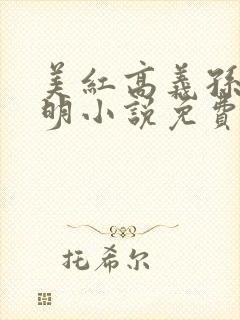 美红高义孙
明小说免费
托希尔